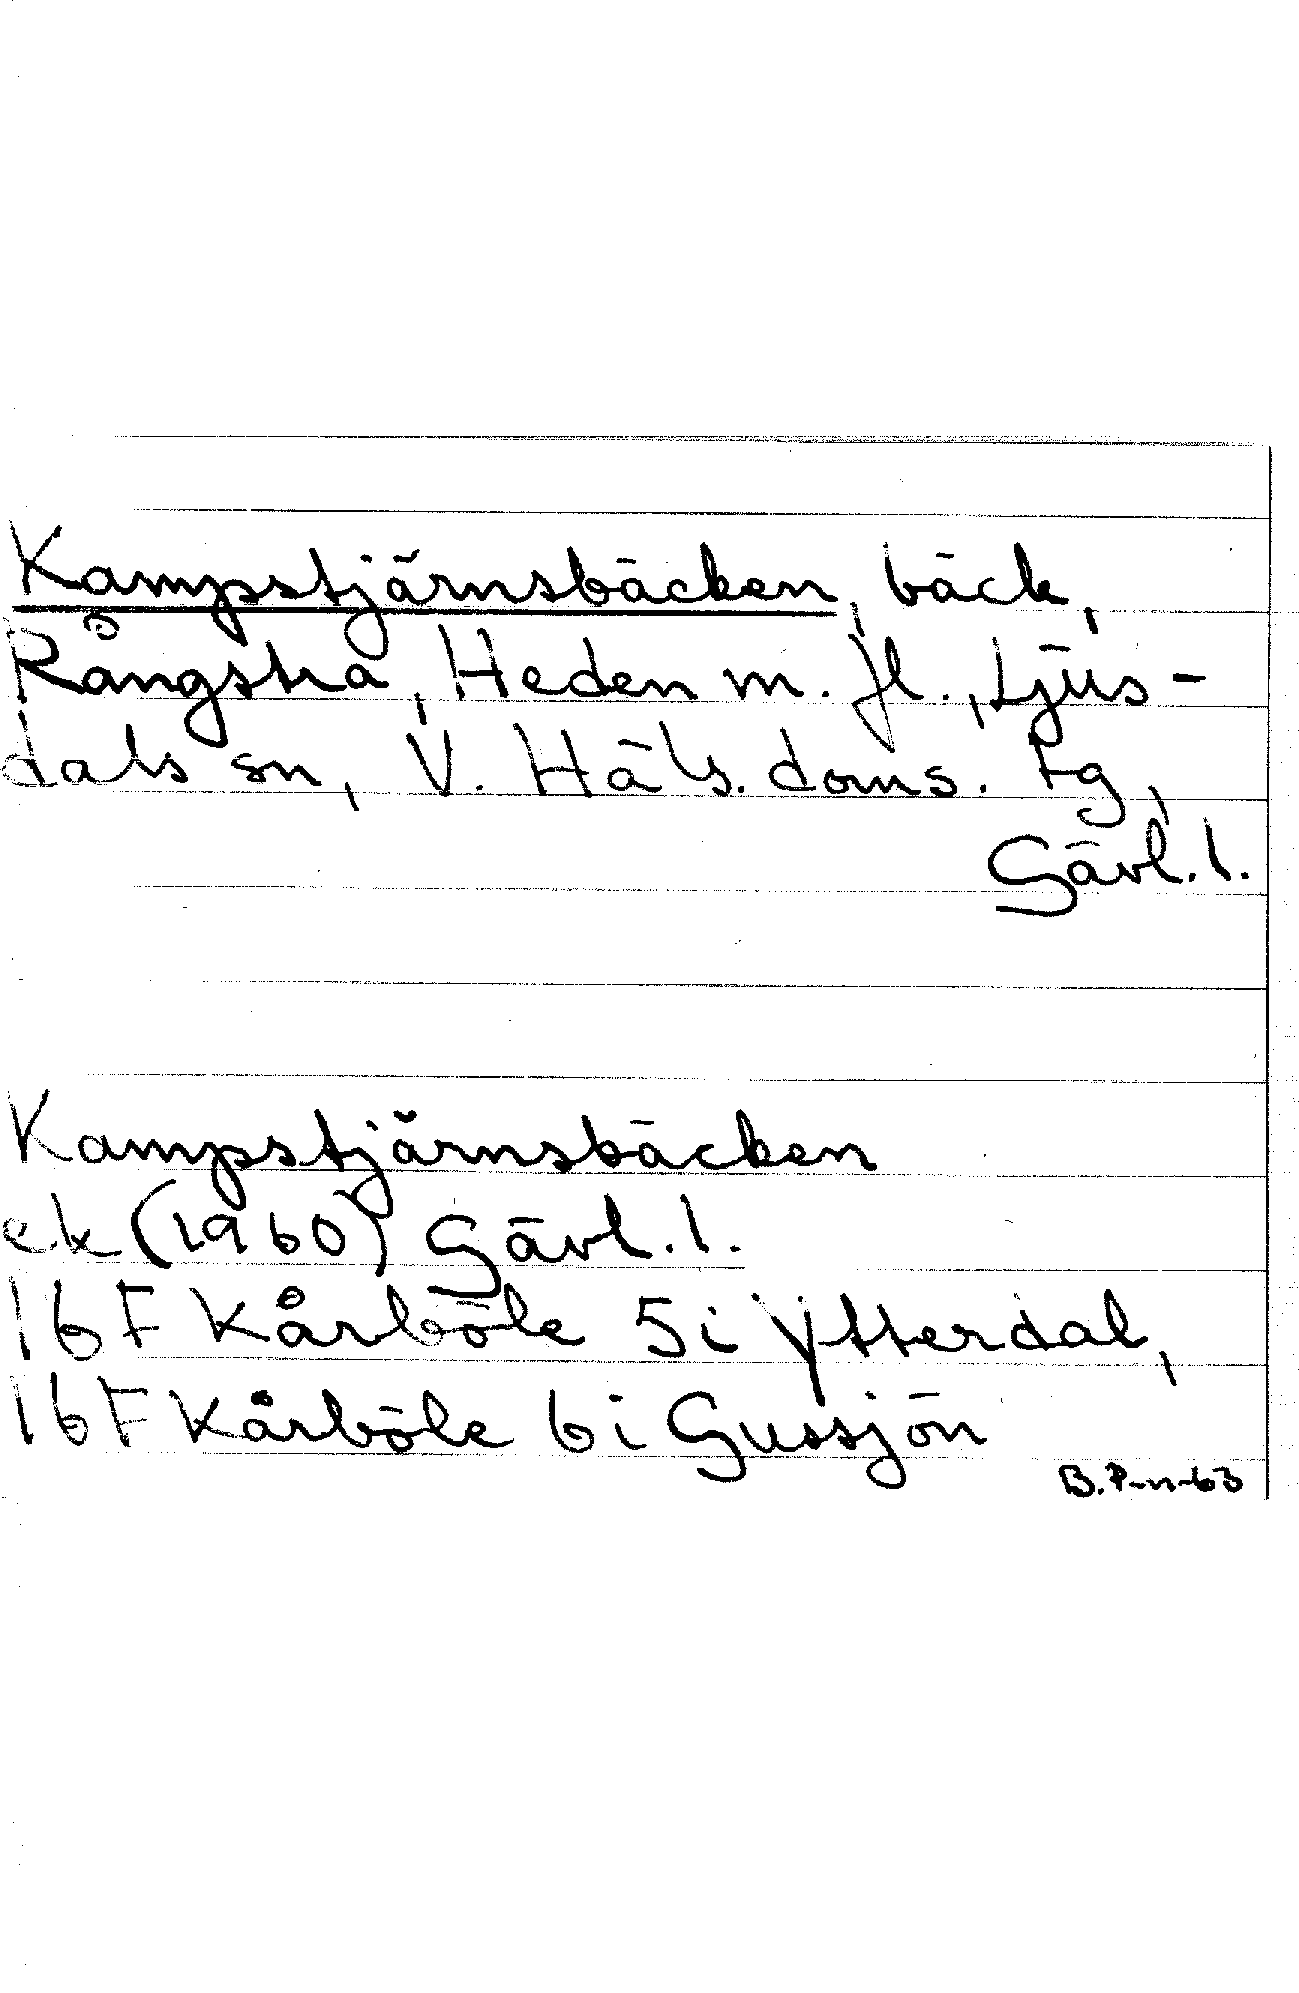 Kampstjärnsbäcken, bäck,
Rångstra, Heden m. fl., Ljus-
dals sn, V. Häls. doms. tg,
Gävl. l.
Kampstjärnsbäcken
ek (1960) Gävl. l.
16 F Kårböle 5 i Ytterdal,
16 F Kårböle 6 i Gussjön
B. P-n-63